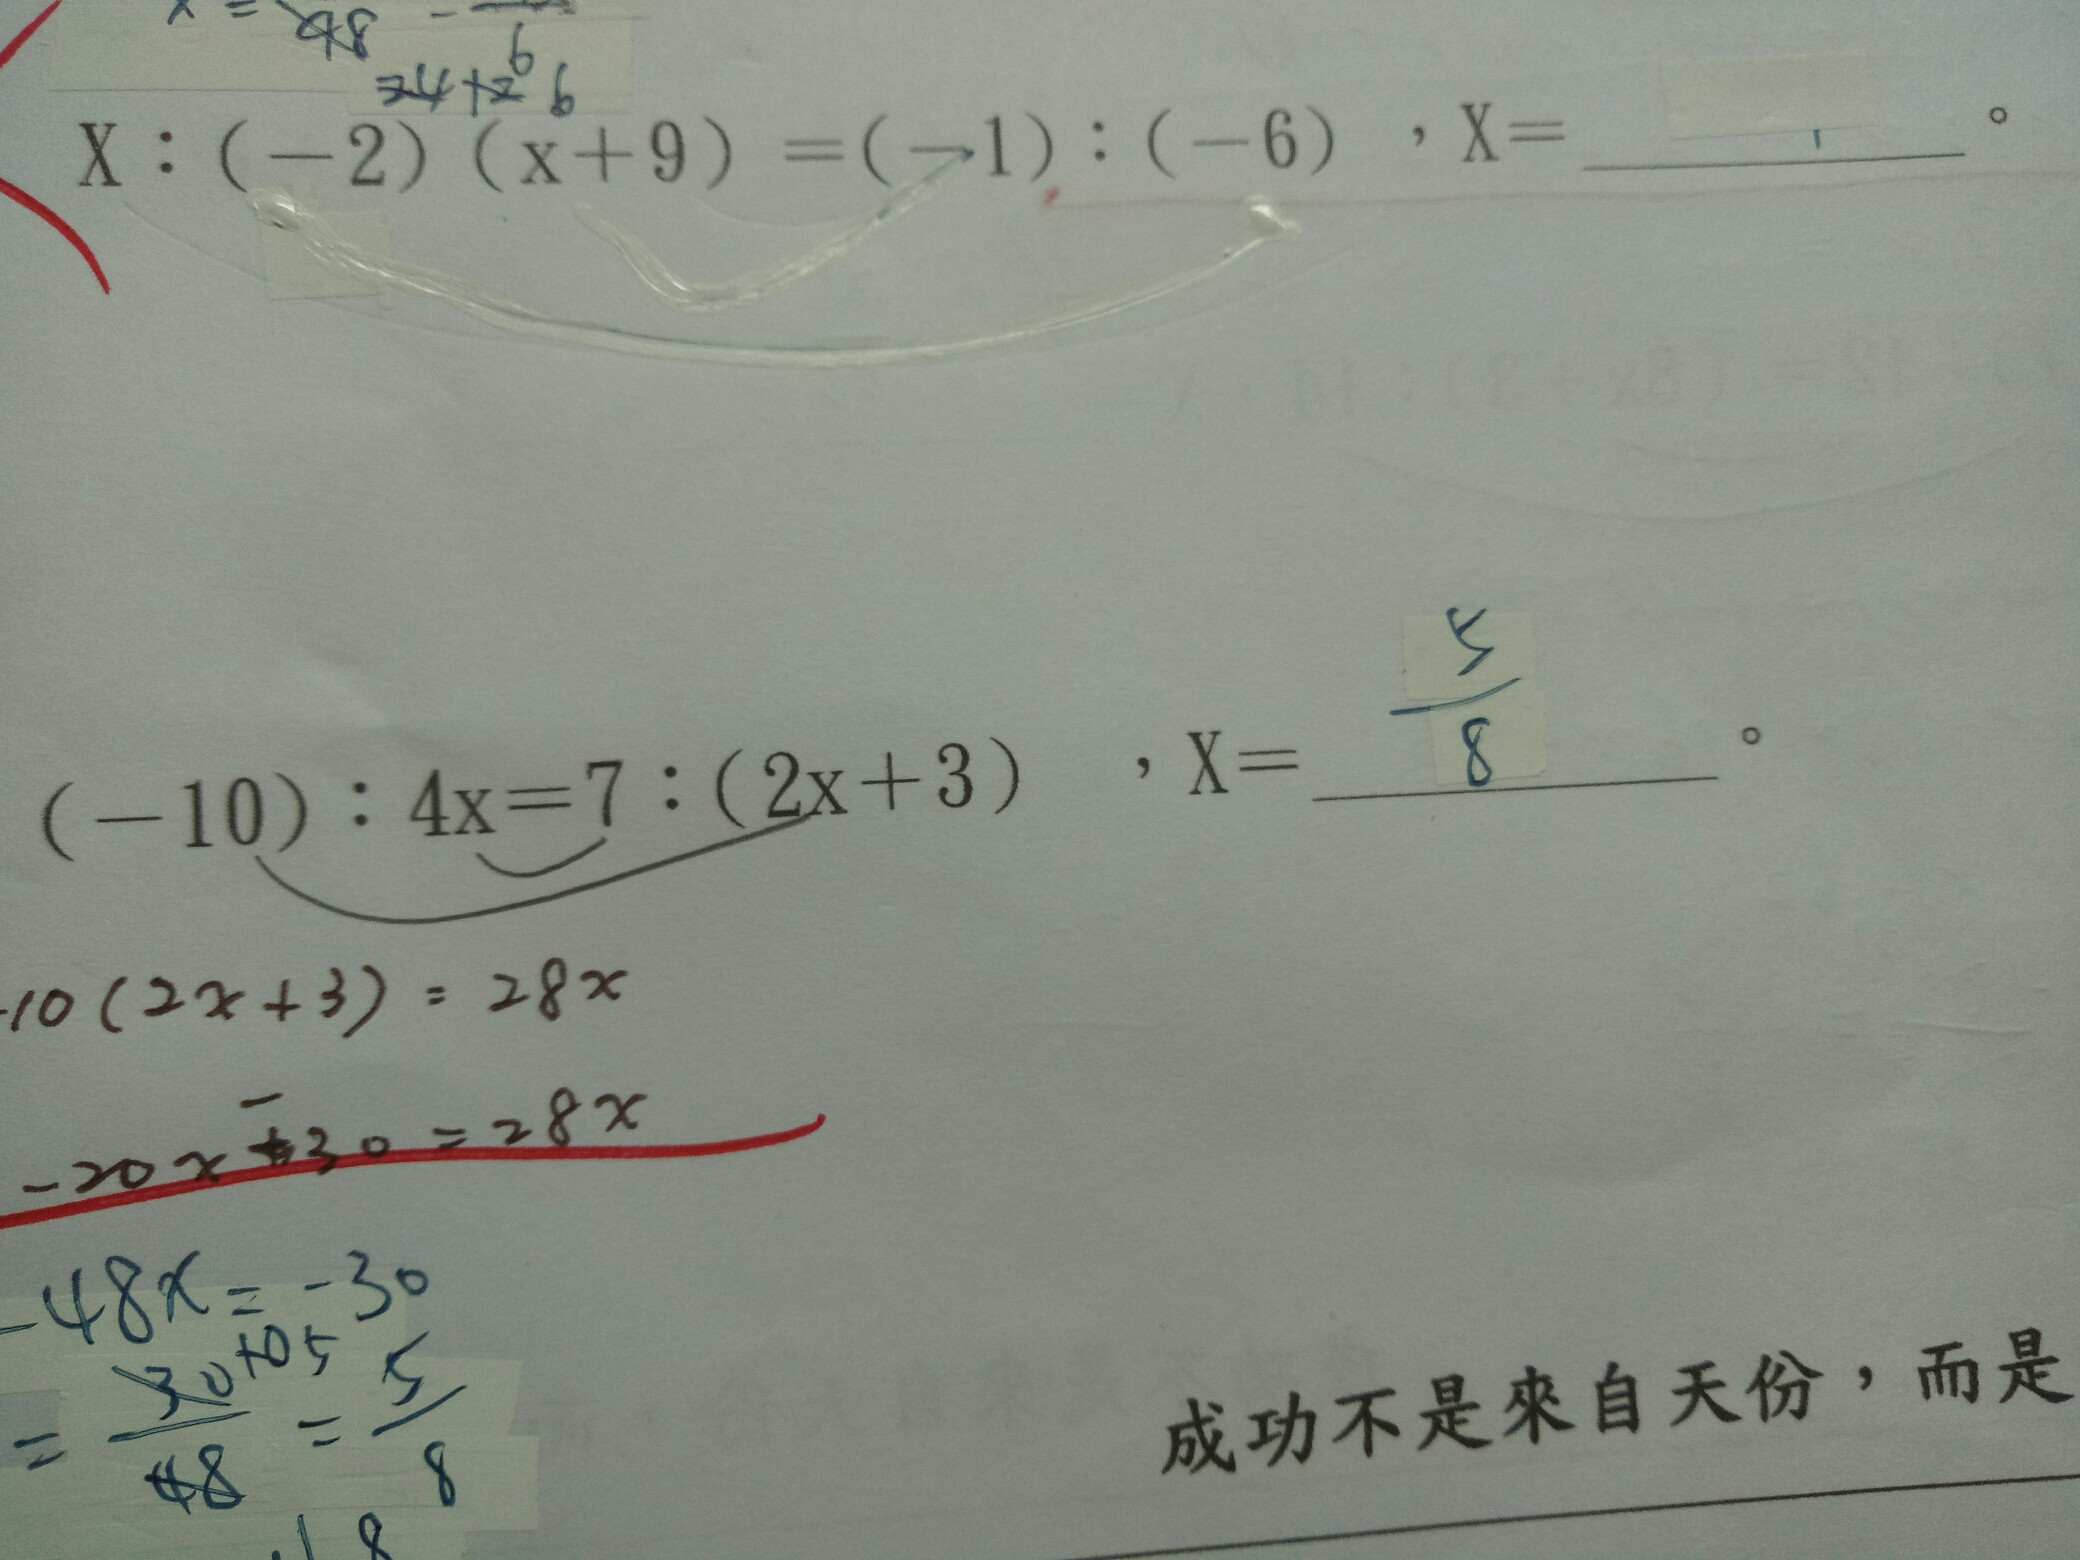 x =
48
6
24+26
X：(－2)(x＋9)＝(－1)：(－6)，X＝ 。
(－10)：4x＝7：(2x＋3) ，X＝ 5/8 。
-10(2x+3) = 28x
-20x-30 = 28x
-48x = -30
= 30/48 = 5/8
8
成功不是來自天份，而是